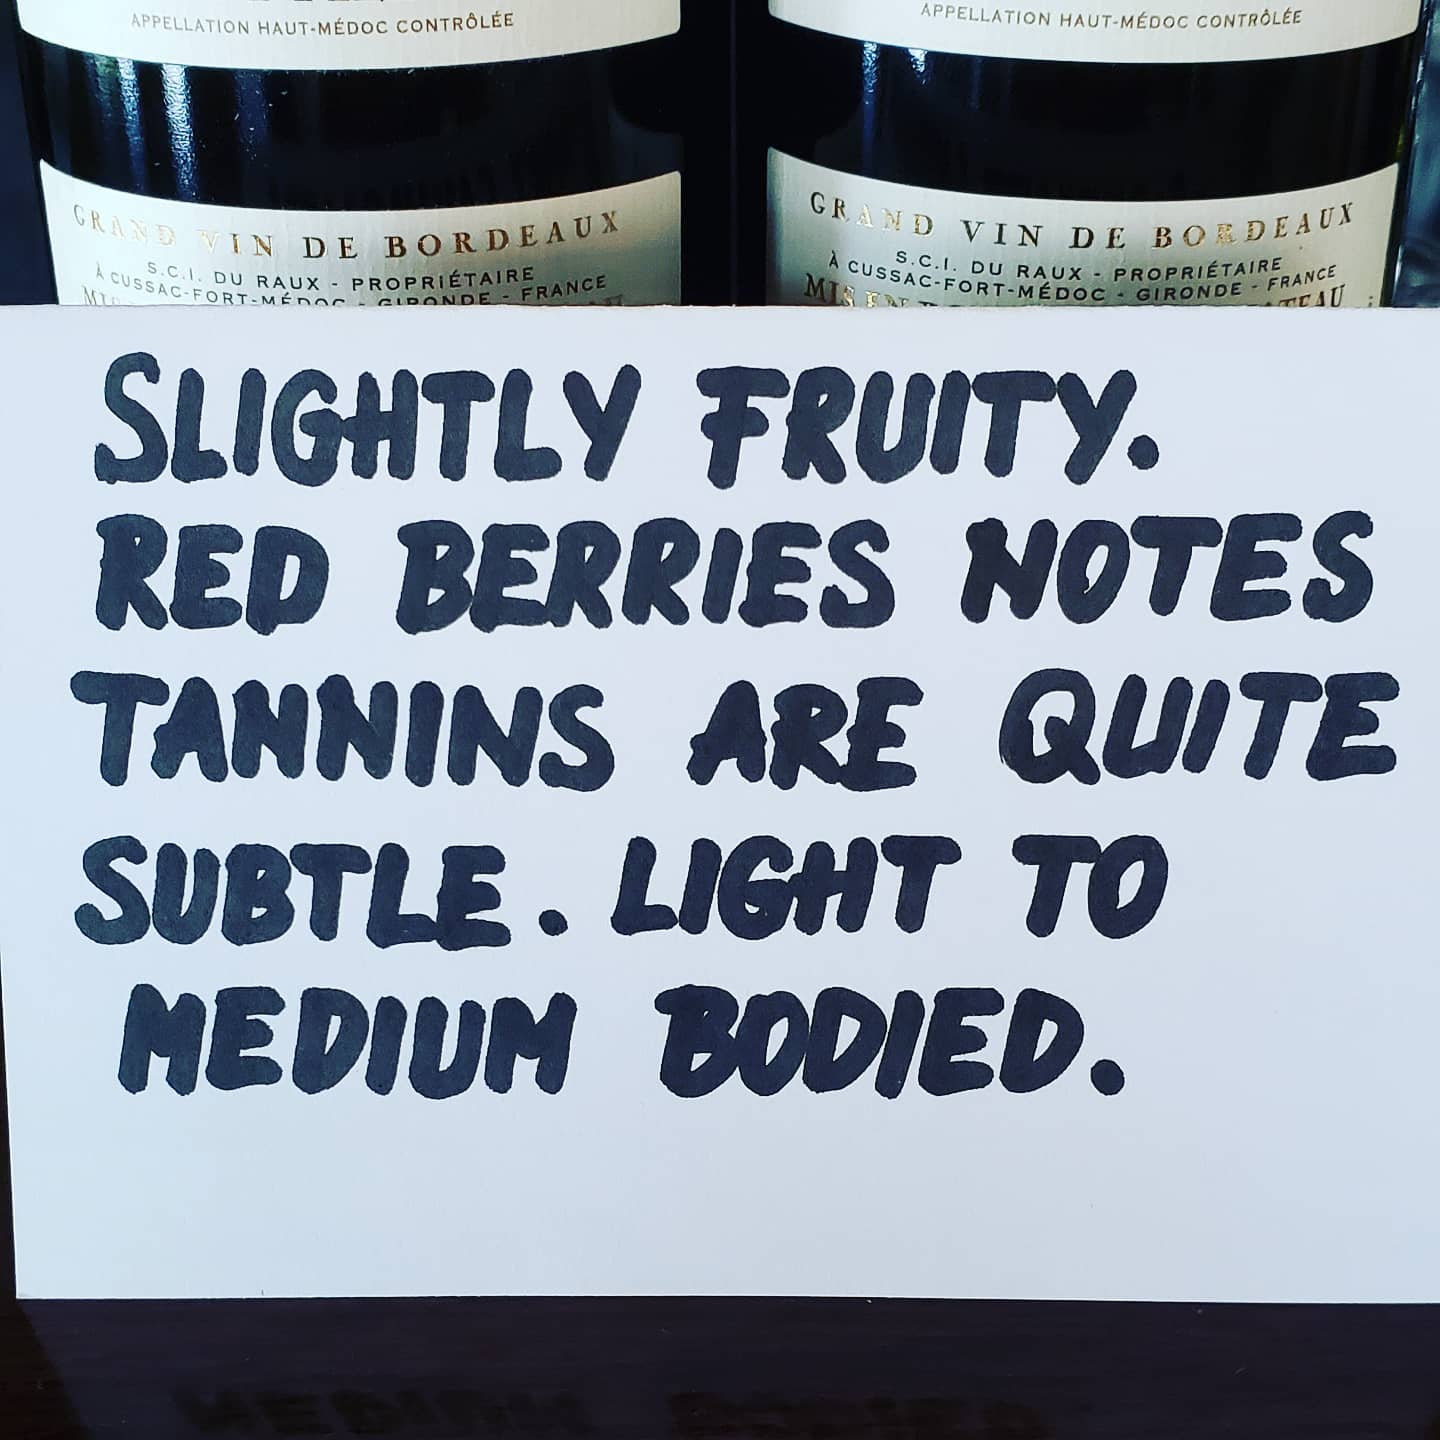 APPELLATION HAUT-MÉDOC CONTRÔLÉE
GRAND VIN DE BORDEAUX
S.C.I. DU RAUX - PROPRIÉTAIRE
À CUSSAC-FORT-MÉDOC - GIRONDE - FRANCE
APPELLATION HAUT-MÉDOC CONTRÔLÉE
GRAND VIN DE BORDEAUX
S.C.I. DU RAUX - PROPRIÉTAIRE
À CUSSAC-FORT-MÉDOC - GIRONDE - FRANCE
MIS EN
SLIGHTLY FRUITY.
RED BERRIES NOTES
TANNINS ARE QUITE
SUBTLE. LIGHT TO
MEDIUM BODIED.